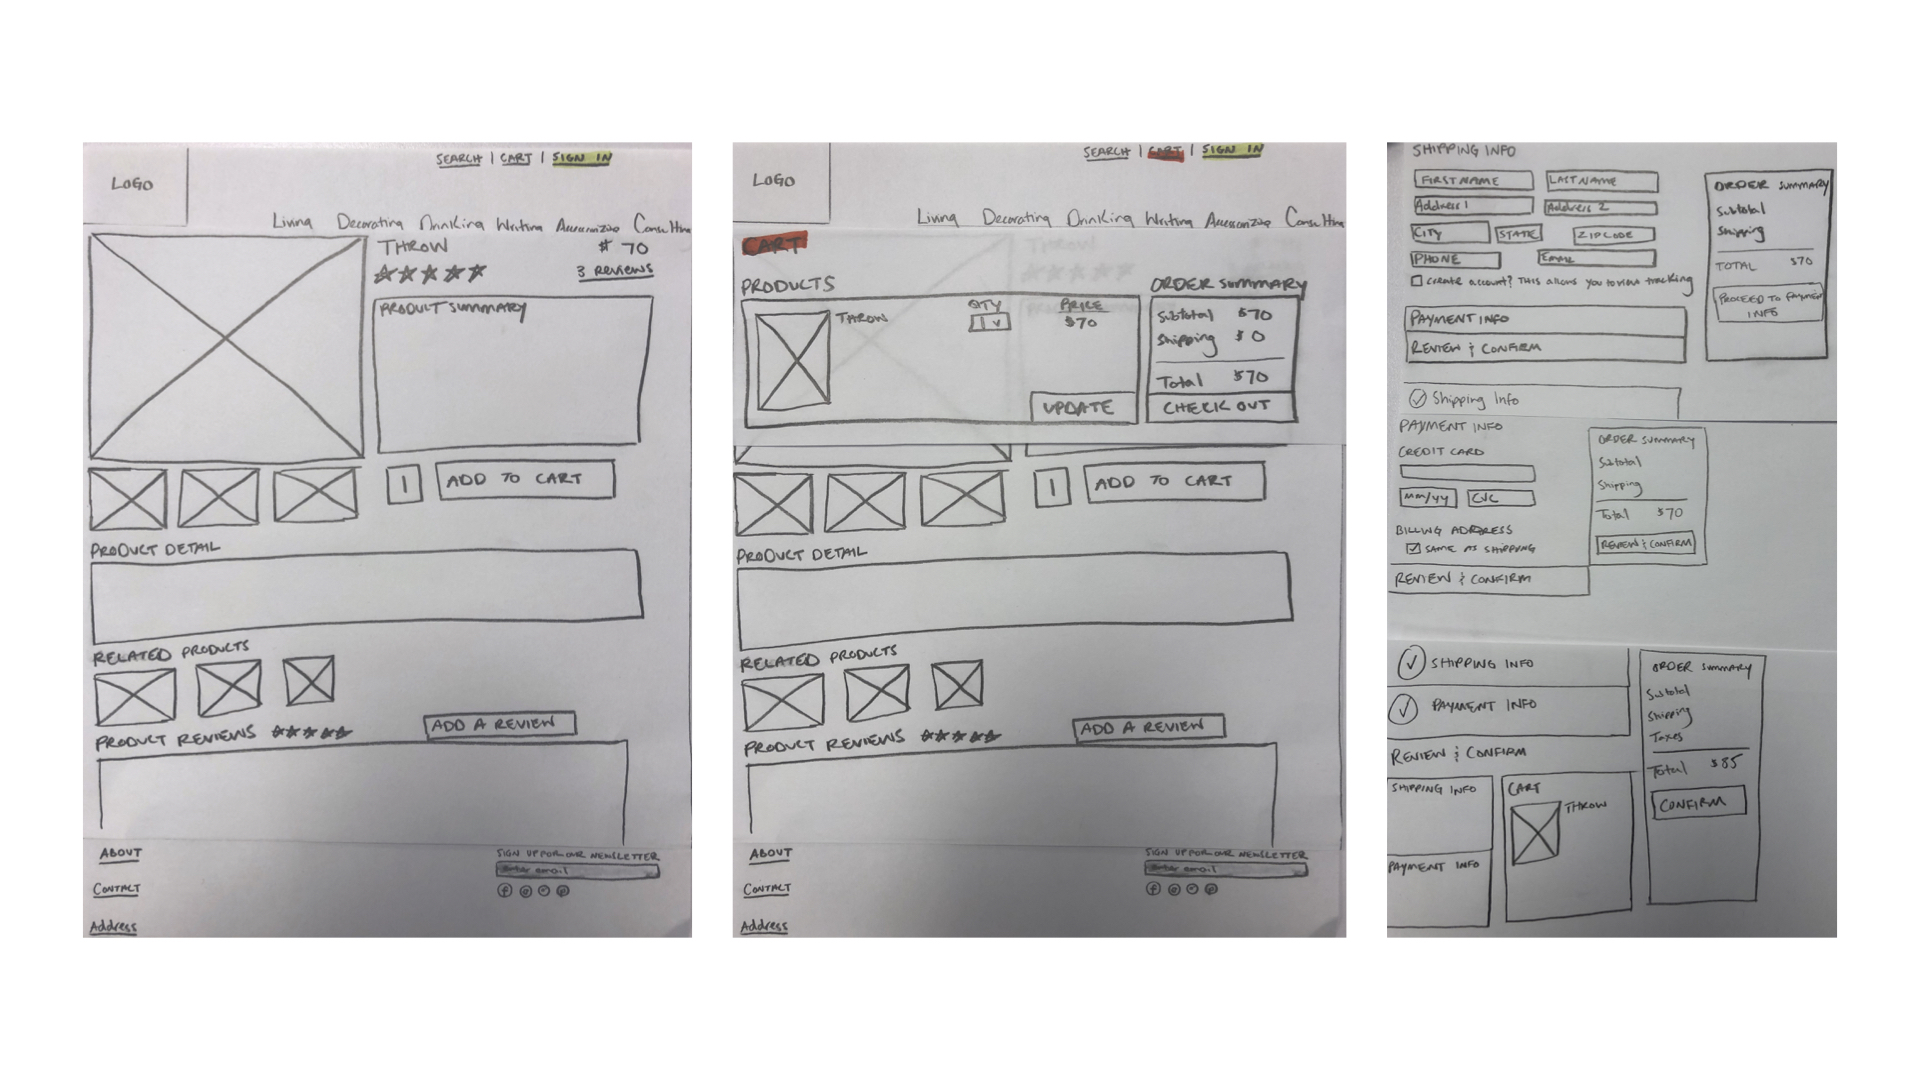 LOGO
SEARCH | CART | SIGN IN
Living Decorating Drinking Writing Accessorizing Consulting
THROW $70
3 REVIEWS
PRODUCT SUMMARY
1 ADD TO CART
PRODUCT DETAIL
RELATED PRODUCTS
PRODUCT REVIEWS ADD A REVIEW
ABOUT
CONTACT
Address
SIGN UP FOR OUR NEWSLETTER
Enter email
LOGO
SEARCH | CART | SIGN IN
Living Decorating Drinking Writing Accessorizing Consulting
CART
PRODUCTS
THROW
QTY
1
PRICE
$70
UPDATE
ORDER SUMMARY
Subtotal $70
Shipping $0
Total $70
CHECK OUT
1 ADD TO CART
PRODUCT DETAIL
RELATED PRODUCTS
PRODUCT REVIEWS ADD A REVIEW
ABOUT
CONTACT
Address
SIGN UP FOR OUR NEWSLETTER
Enter email
SHIPPING INFO
FIRST NAME LAST NAME
Address 1 Address 2
CITY STATE ZIPCODE
PHONE EMAIL
CREATE ACCOUNT? THIS allows you to view tracking
PAYMENT INFO
REVIEW & CONFIRM
ORDER SUMMARY
Subtotal
Shipping
TOTAL $70
PROCEED TO PAYMENT
INFO
Shipping Info
PAYMENT INFO
CREDIT CARD
MM/YY CVC
BILLING ADDRESS
SAME AS SHIPPING
REVIEW & CONFIRM
ORDER SUMMARY
Subtotal
Shipping
Total $70
REVIEW & CONFIRM
SHIPPING INFO
PAYMENT INFO
REVIEW & CONFIRM
SHIPPING INFO
PAYMENT INFO
CART
THROW
ORDER SUMMARY
Subtotal
Shipping
Taxes
Total $85
CONFIRM